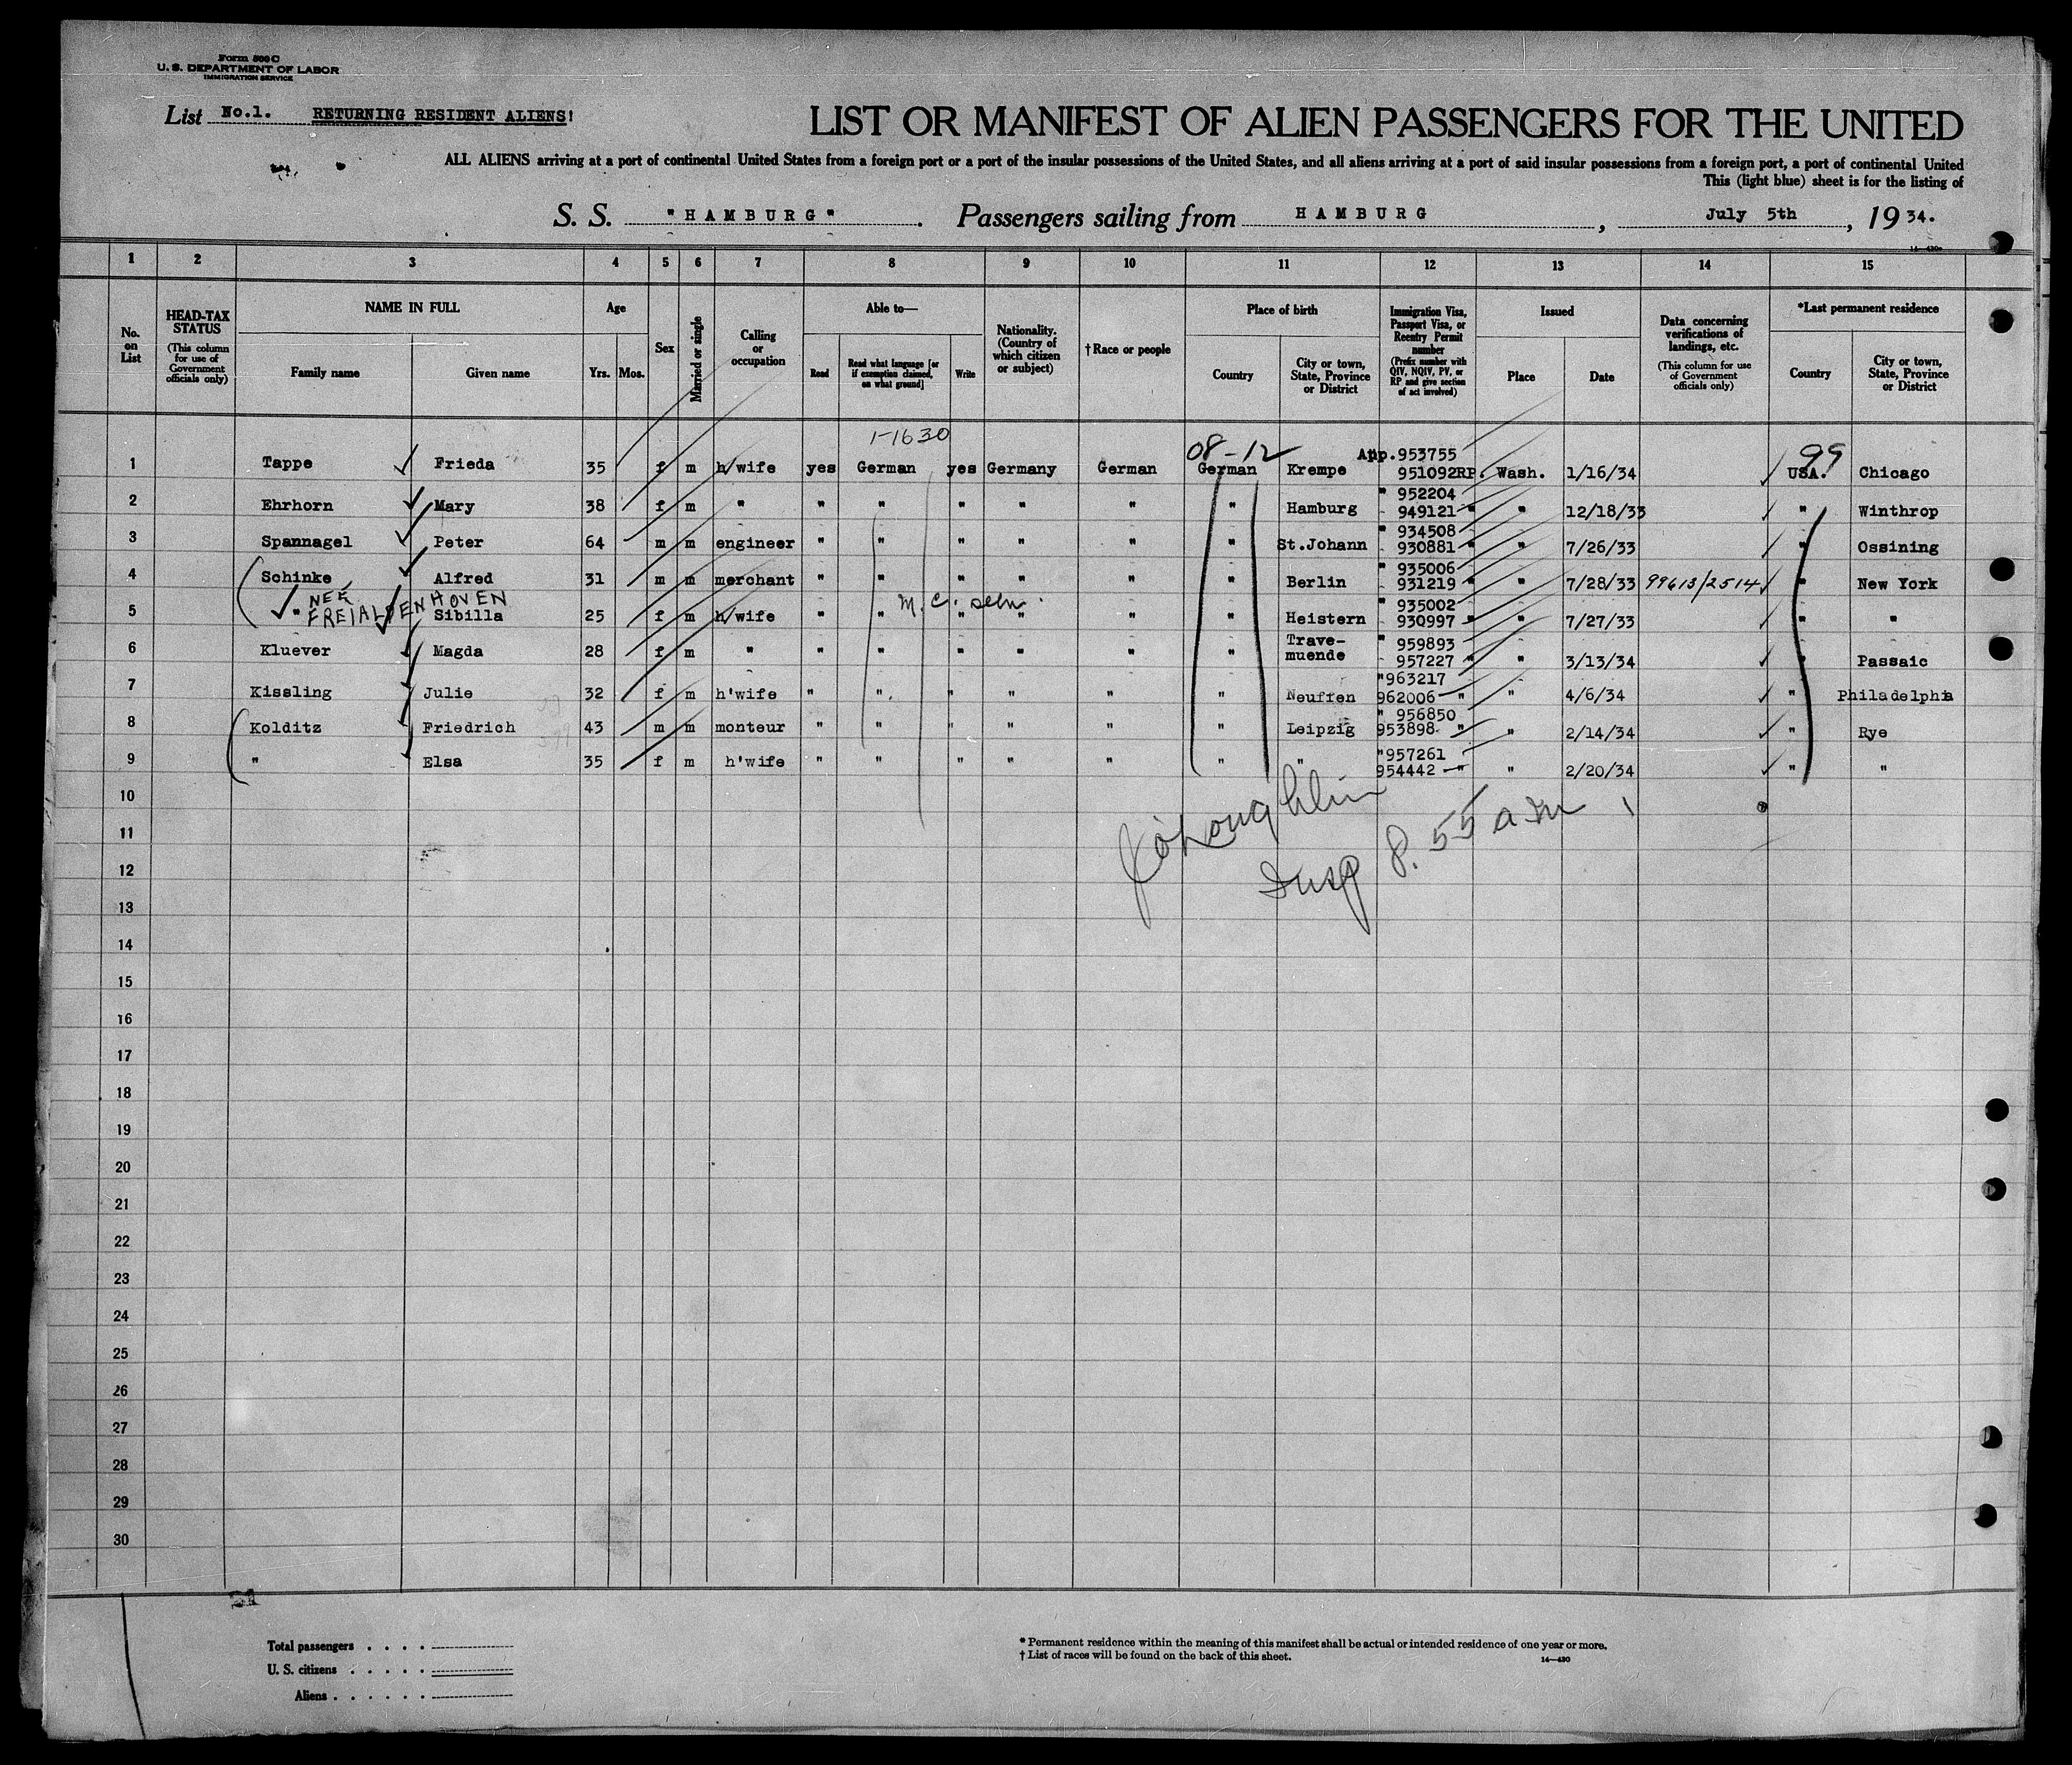 Form 500 C
U. S. DEPARTMENT OF LABOR
IMMIGRATION SERVICE
List No.1. RETURNING RESIDENT ALIENS!
LIST OR MANIFEST OF ALIEN PASSENGERS FOR THE UNITED
ALL ALIENS arriving at a port of continental United States from a foreign port or a port of the insular possessions of the United States, and all aliens arriving at a port of said insular possessions from a foreign port, a port of continental United
This (light blue) sheet is for the listing of
S. S. "HAMBURG". Passengers sailing from HAMBURG, July 5th, 19 34.
14—430
1 2 3 4 5 6 7 8 9 10 11 12 13 14 15
No. on List
HEAD-TAX STATUS
(This column for use of Government officials only)
NAME IN FULL
Family name Given name
Age
Yrs. Mos.
Sex
Married or single
Calling or occupation
Able to—
Read
Read what language [or if exemption claimed, on what ground]
Write
Nationality. (Country of which citizen or subject)
† Race or people
Place of birth
Country
City or town, State, Province or District
Immigration Visa, Passport Visa, or Reentry Permit number
(Prefix number with QIV, NQIV, PV, or RP and give section of act involved)
Issued
Place Date
Data concerning verifications of landings, etc.
(This column for use of Government officials only)
*Last permanent residence
Country
City or town, State, Province or District
1-1630
08-12 99
App.953755
1 Tappe Frieda 35 f m h/wife yes German yes Germany German German Krempe 951092RP. Wash. 1/16/34 USA. Chicago
" 952204
2 Ehrhorn Mary 38 f m " " " " " " " Hamburg 949121 " " 12/18/33 " Winthrop
" 934508
3 Spannagel Peter 64 m m engineer " " " " " " St.Johann 930881 " " 7/26/33 " Ossining
" 935006
4 Schinke Alfred 31 m m merchant " " " " " " Berlin 931219 " " 7/28/33 99613/2514 " New York
NEE
FREIALDENHOVEN
M. C. seen.
" 935002
5 " Sibilla 25 f m h/wife " " " " " " Heistern 930997 " " 7/27/33 " "
Trave- " 959893
6 Kluever Magda 28 f m " " " " " " " muende 957227 " " 3/13/34 " Passaic
"963217
7 Kissling Julie 32 f m h'wife " " " " " " Neuffen 962006 " " 4/6/34 " Philadelphia
" 956850
8 Kolditz Friedrich 43 m m monteur " " " " " " Leipzig 953898 " " 2/14/34 " Rye
"957261
9 " Elsa 35 f m h'wife " " " " " " " 954442 " " 2/20/34 " "
10
11
12
13
14
15
16
17
18
19
20
21
22
23
24
25
26
27
28
29
30
O'Loughlin
Insp 8.55 am
Total passengers
U. S. citizens
Aliens
* Permanent residence within the meaning of this manifest shall be actual or intended residence of one year or more.
† List of races will be found on the back of this sheet.
14—430